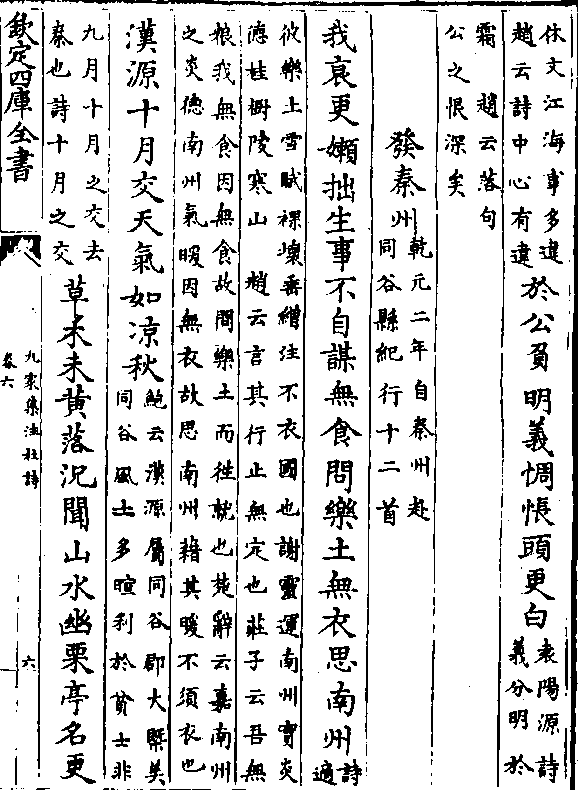 休文江海事多違
趙云詩中心有違
於公負明義惆悵頭更白
袁陽源詩
義分明於
霜　趙云落句
公之恨深矣
發秦州
乾元二年自秦州赴
同谷縣紀行十二首
我衰更嬾拙生事不自謀無食問樂土無衣思南州
詩
適
彼樂土雪賦裸壤垂繒注不衣國也謝靈運南州實炎
德桂樹陵寒山　趙云言其行止無定也莊子云吾無
粮我無食因無食故問樂土而往就也楚辭云嘉南州
之炎德南州氣暖因無衣故思南州藉其暖不須衣也
漢源十月交天氣如凉秋
鮑云漢源屬同谷郡大槩美
同谷風土多暄利於貧士非
九月十月之交去
秦也詩十月之交
草木未黄落況聞山水幽栗亭名更
欽定四庫全書
九家集注杜詩
卷六
六